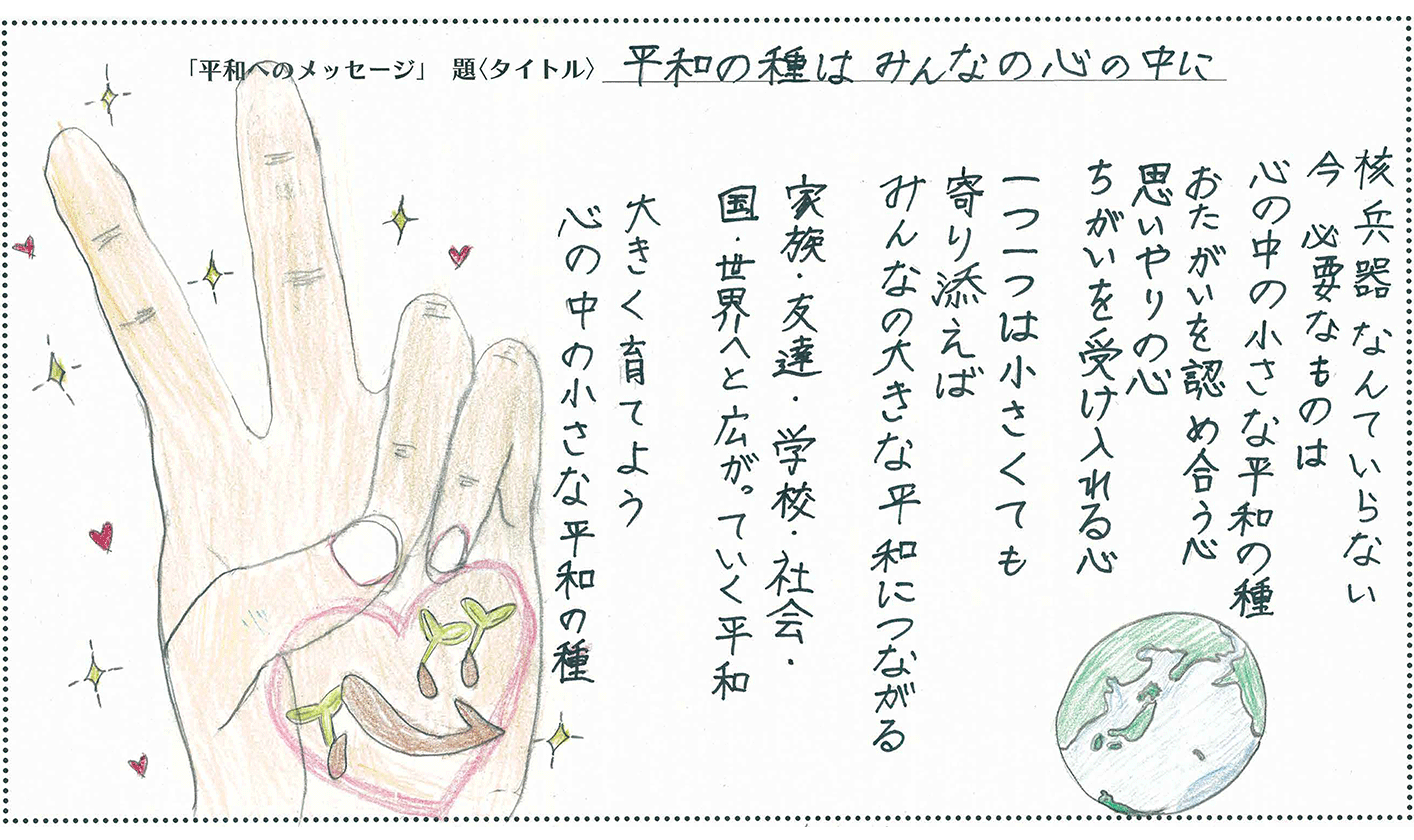 「平和へのメッセージ」 題〈タイトル〉 平和の種は みんなの心の中に
核兵器 なんていらない
今 必要なものは
心の中の小さな平和の種
おたがいを認め合う心
思いやりの心
ちがいを受け入れる心
一つ一つは小さくても
寄り添えば
みんなの大きな平和につながる
家族・友達・学校・社会・
国・世界へと広がっていく平和
大きく育てよう
心の中の小さな平和の種